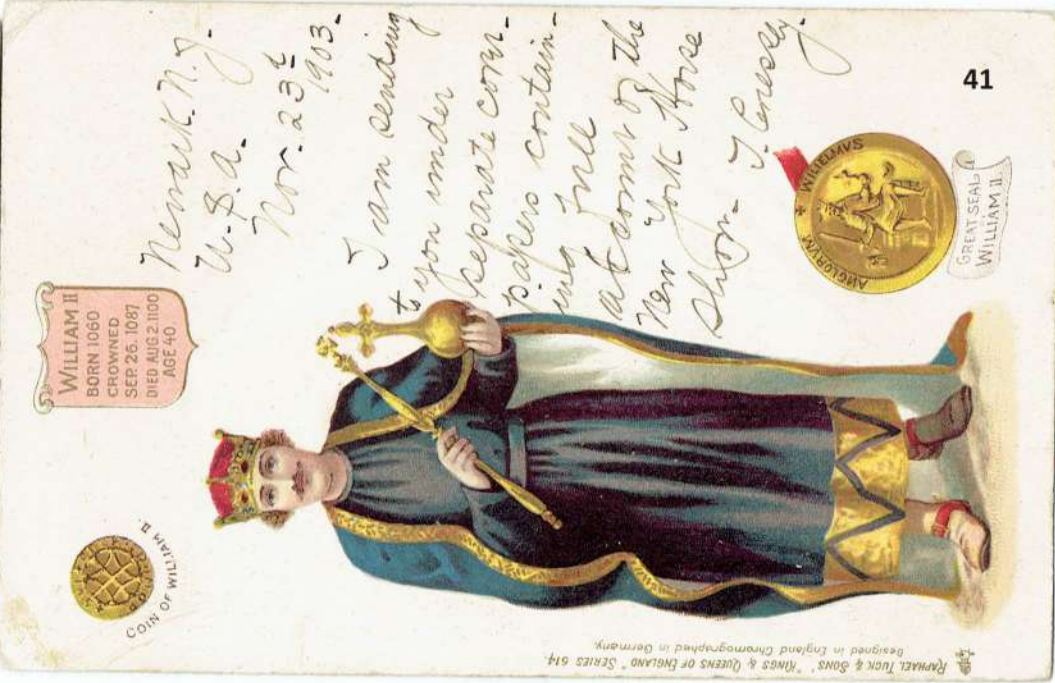 COIN OF WILLIAM II.
WILLIAM II
BORN 1060
CROWNED
SEP. 26. 1087
DIED AUG 2. 1100
AGE 40
Newark. N. J.
U. S. A.
Nov. 23d
1903.
I am sending
to you under
separate cover
papers contain-
ing full
account of the
New York Horse
Show.
41
WILLELMVS
ANGLORVM
GREAT SEAL
WILLIAM II.
RAPHAEL TUCK & SONS' "KINGS & QUEENS OF ENGLAND" SERIES 614.
Designed in England Chromographed in Germany.